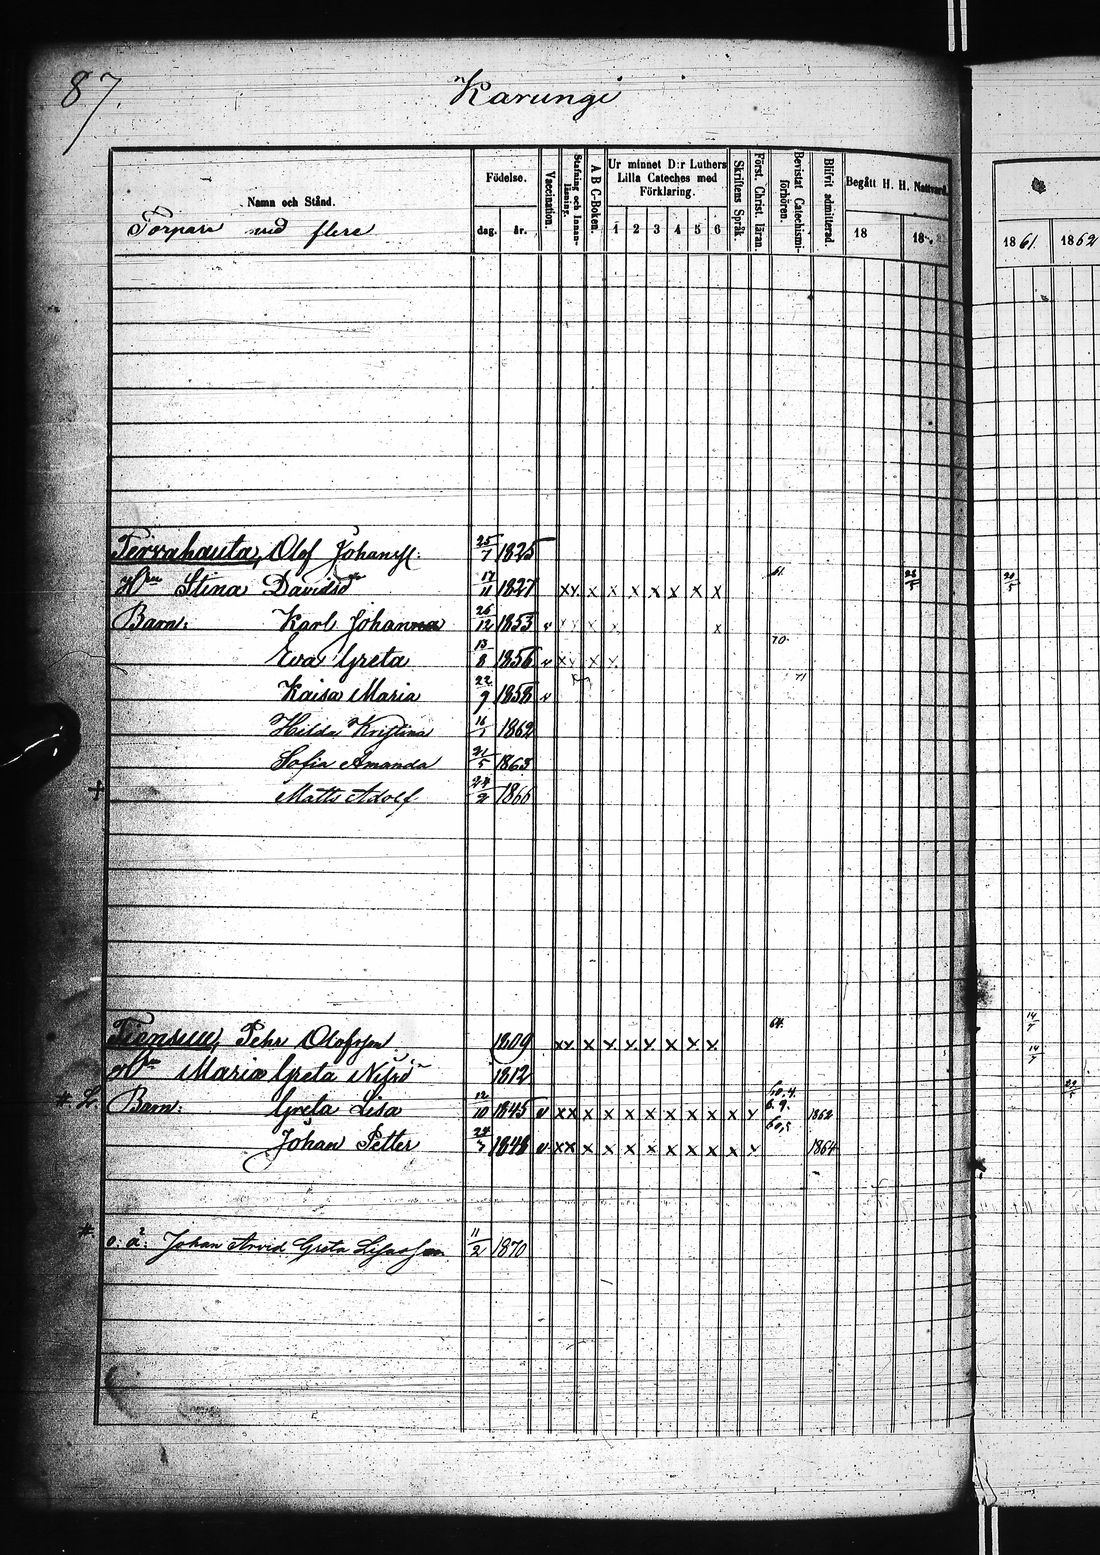 87.
Karungi
Namn och Stånd.
Torpare med flere
Födelse.
dag. år.
Vaccination.
Stafning och Innanläsning.
A B C-Boken.
Ur minnet D:r Luthers Lilla Cateches med Förklaring.
1 2 3 4 5 6
Skriftens Språk.
Först. Christ. läran.
Bevistat Catechismiförhören.
Blifvit admitterad.
Begått H. H. Nattvard.
18 18
1861. 1862
Tervahauta, Olof Johanss. 25/7 1825
Hu Stina Davidsdr 17/11 1827 xx x x x x x x x 61.
Barn: Karl Johan 26/12 1853 v x x x x x
Eva Greta 13/8 1856 v x x x x 70.
Kaisa Maria 22/9 1858 v 71
Hilda Kristina 16/1 1862
Sofia Amanda 21/5 1863
+ Matts Adolf 24/2 1866
Pehr Olofsson 1809 xx x x x x x x x 64. 14/7
Hu Maria Greta Nilsdr 1812 14/7
#. Barn: Greta Lisa 12/10 1845 v xx x x x x x x x x x 60,4. 6.9. 1862
Johan Petter 24/3 1848 v xx x x x x x x x x x 60,5 1864
#. o. ä. Johan Arvid Greta Lisasson 11/2 1870